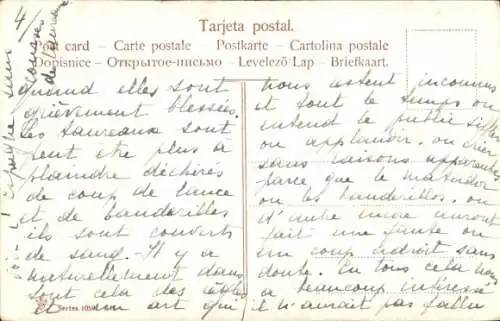 4/
courses
de taureaux
Tarjeta postal.
Post card – Carte postale – Postkarte – Cartolina postale
Dopisnice – Открытое-письмо – Levelező-Lap – Briefkaart.
quand elles sont
grièvement blessées.
Les taureaux sont
peut être plus à
plaindre déchirés
de coup de lance
et de banderilles
ils sont couverts
de sang. Il y a
naturellement dans
tout cela des côtés
et un art qui
Series 105
nous restent inconnus
et tout le temps on
entend le public siffler
ou applaudir, ou crier
sans raisons apparentes
parce que le matador
ou les banderillos, ou
d'autre encore auront
fait une faute ou
un coup adroit sans
doute. En tous cela nous
a beaucoup intéressé
il n'aurait pas fallu